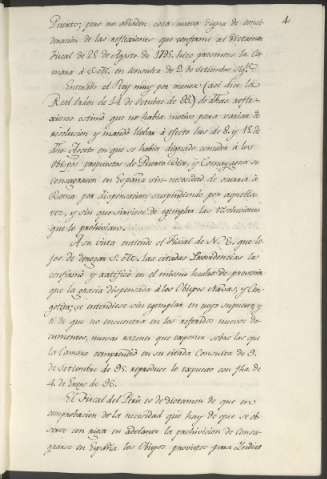 4
Puerto; pero no añaden cosa nueva digna de consi-
deracion de las reflexiones que conforme al dictamen
Fiscal de 25 de Agosto de 1795 hizo presentes la Ca-
mara à S. M. en consulta de 9. de Setiembre
Enterado el Rey muy por menor (asi dice la
Real orden de 14 de octubre de 95) de dhas refle-
xiones estimó que no habia motivo para variar de
resolucion y mandó llebar à efecto las de 8. y 15. de
dho Agosto en que se habia dignado conceder à los
obispos propuestos de Puerto y Comayagua se
consagrasen en España sin necesidad de acudir à
Roma por dispensacion suspendiendo por aquella
vez, y sin que sirviese de exemplar las resoluciones
que lo prohivian.
A su vista entiende el Fiscal de N. E. que le-
jos de derogar S. M. las citadas Providencias las
confirmó y ratificó en el mismo hecho de prevenir
que la gracia dispensada à los obispos citados, y
se entendiese sin exemplar en cuyo supuesto, y
el de que no encuentra en los referidos nuevos do-
cumentos, nueva razon que exponer sobre los que
la Camara comprendió en su citada Consulta de 9.
de Setiembre de 95. reproduce lo expuesto con fha de
4. de Enero de 96.
El Fiscal del Perú es de dictamen de que en
comprobacion de la necesidad que hay de que se ob-
serve con rigor en adelante la prohivicion de consa-
grarse en España los obispos provistos para Yndias